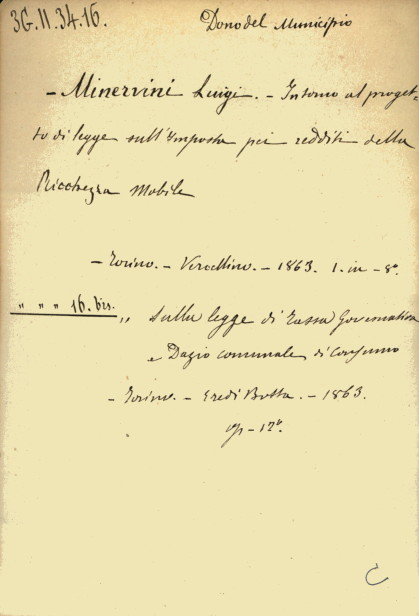 3G.II.34.16. Dono del Municipio
- Minervini Luigi. - Intorno al proget-
to di legge sull'Imposta pei redditi della
Ricchezza Mobile
- Torino. - Vercellino. - 1863. 1. in - 8°
" " " 16. bis. " Sulla legge di Tassa Governativa
e Dazio comunale di Consumo
- Torino. - Eredi Botta. - 1863.
op - 12°.
C